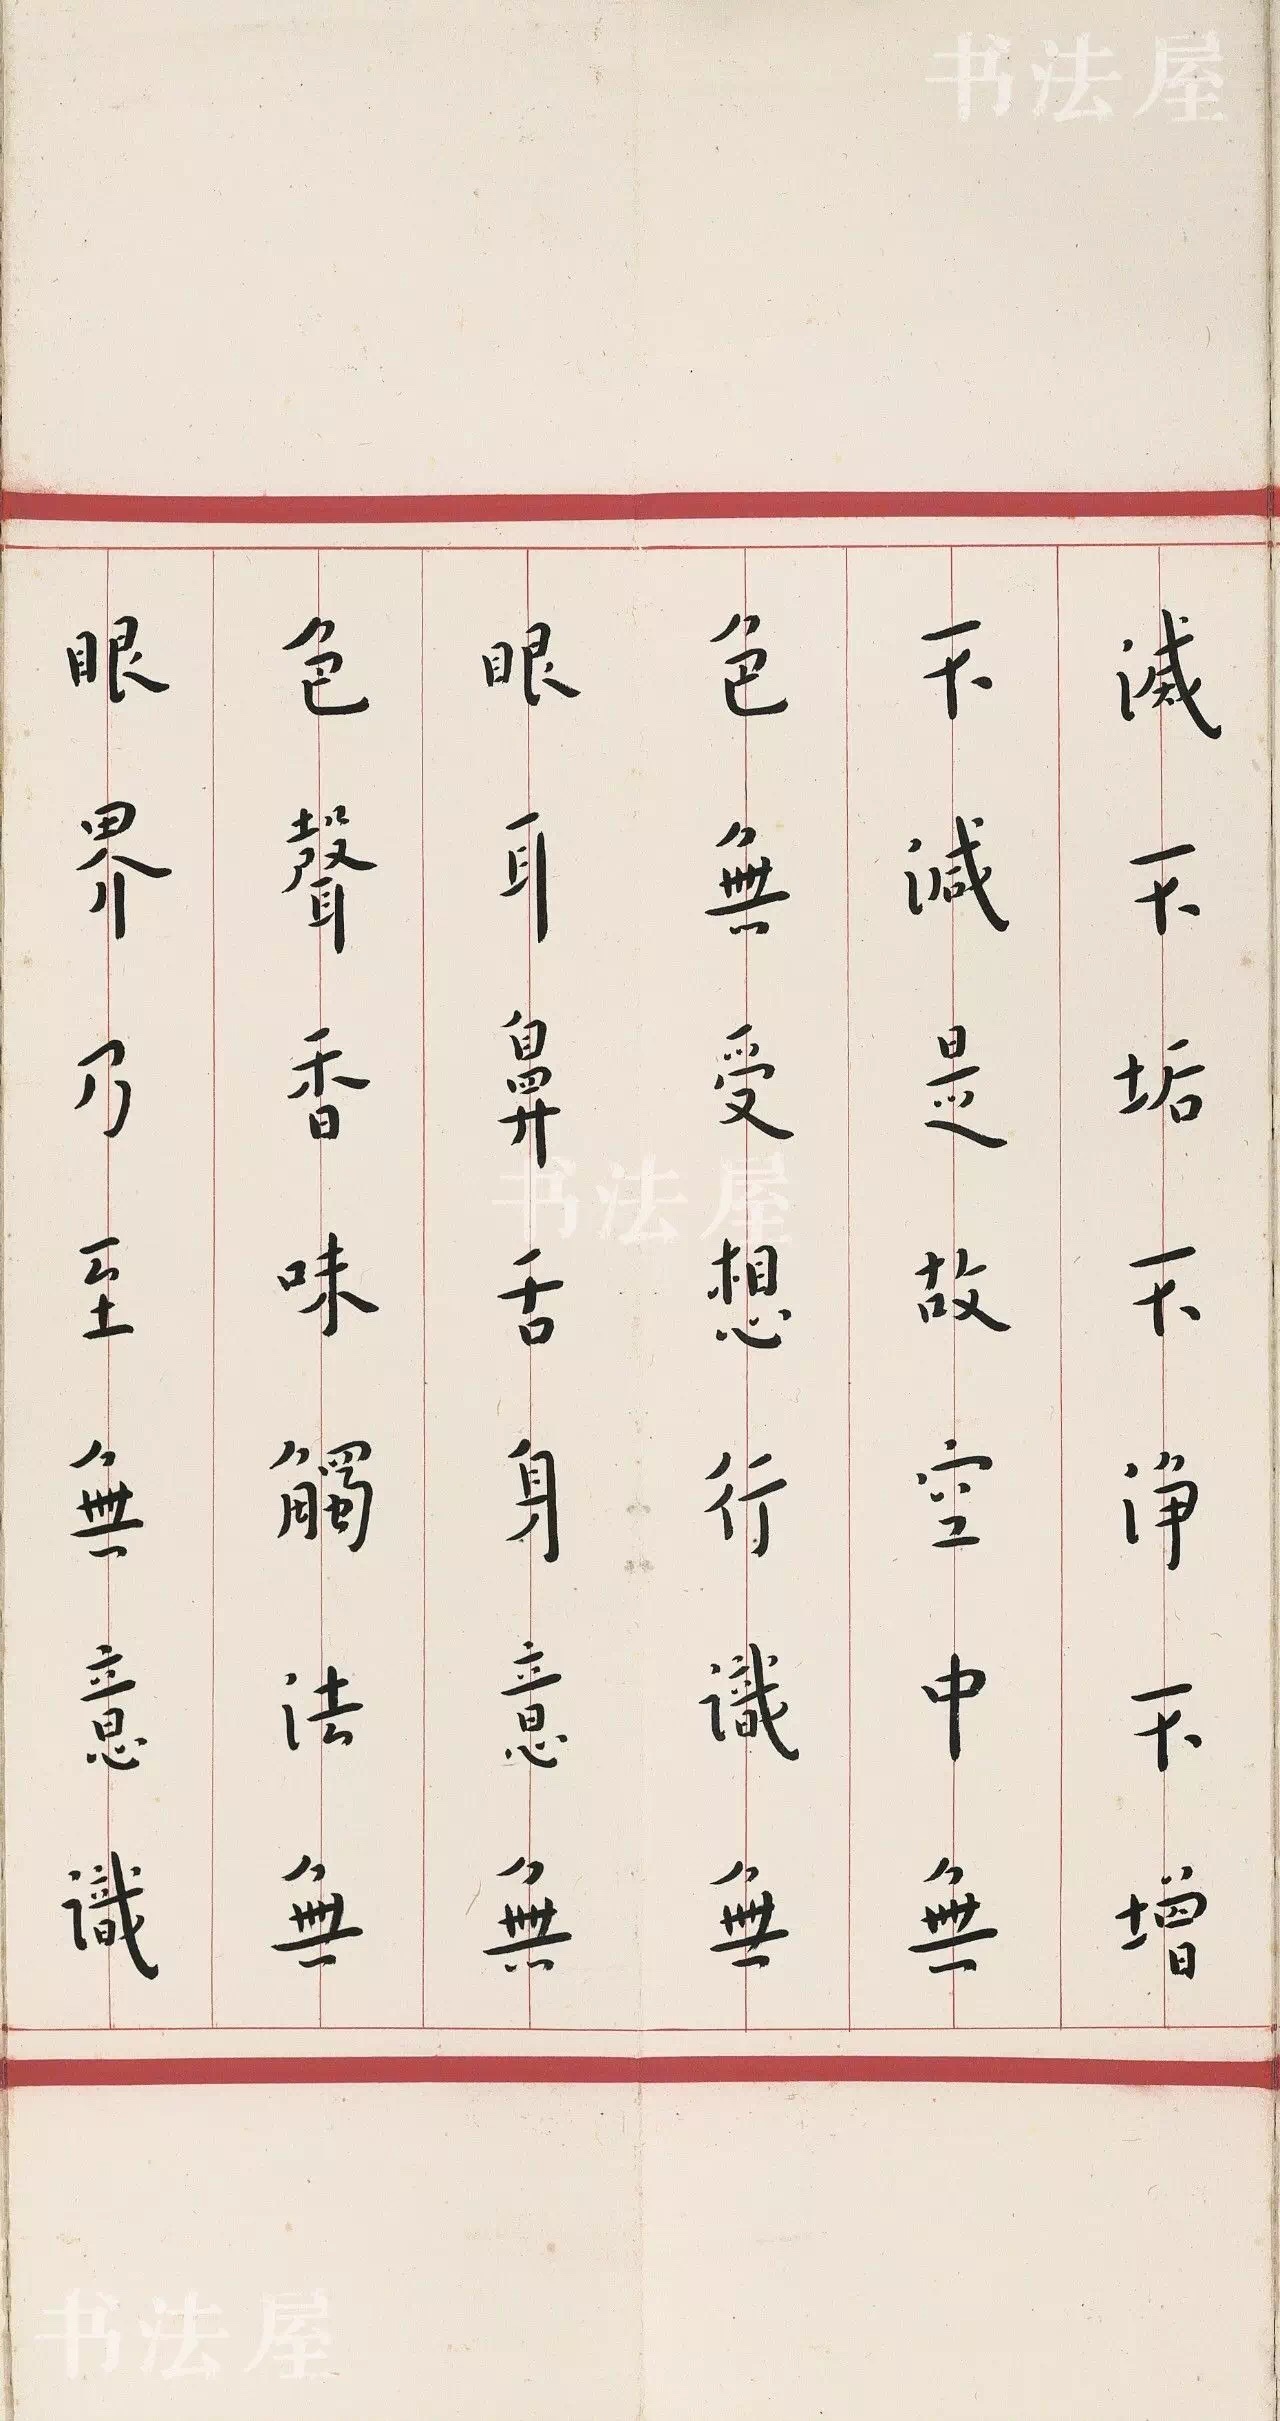 书法屋
滅不垢不淨不增
不減是故空中無
色無受想行識無
眼耳鼻舌身意無
色聲香味觸法無
眼界乃至無意識
书法屋
书法屋